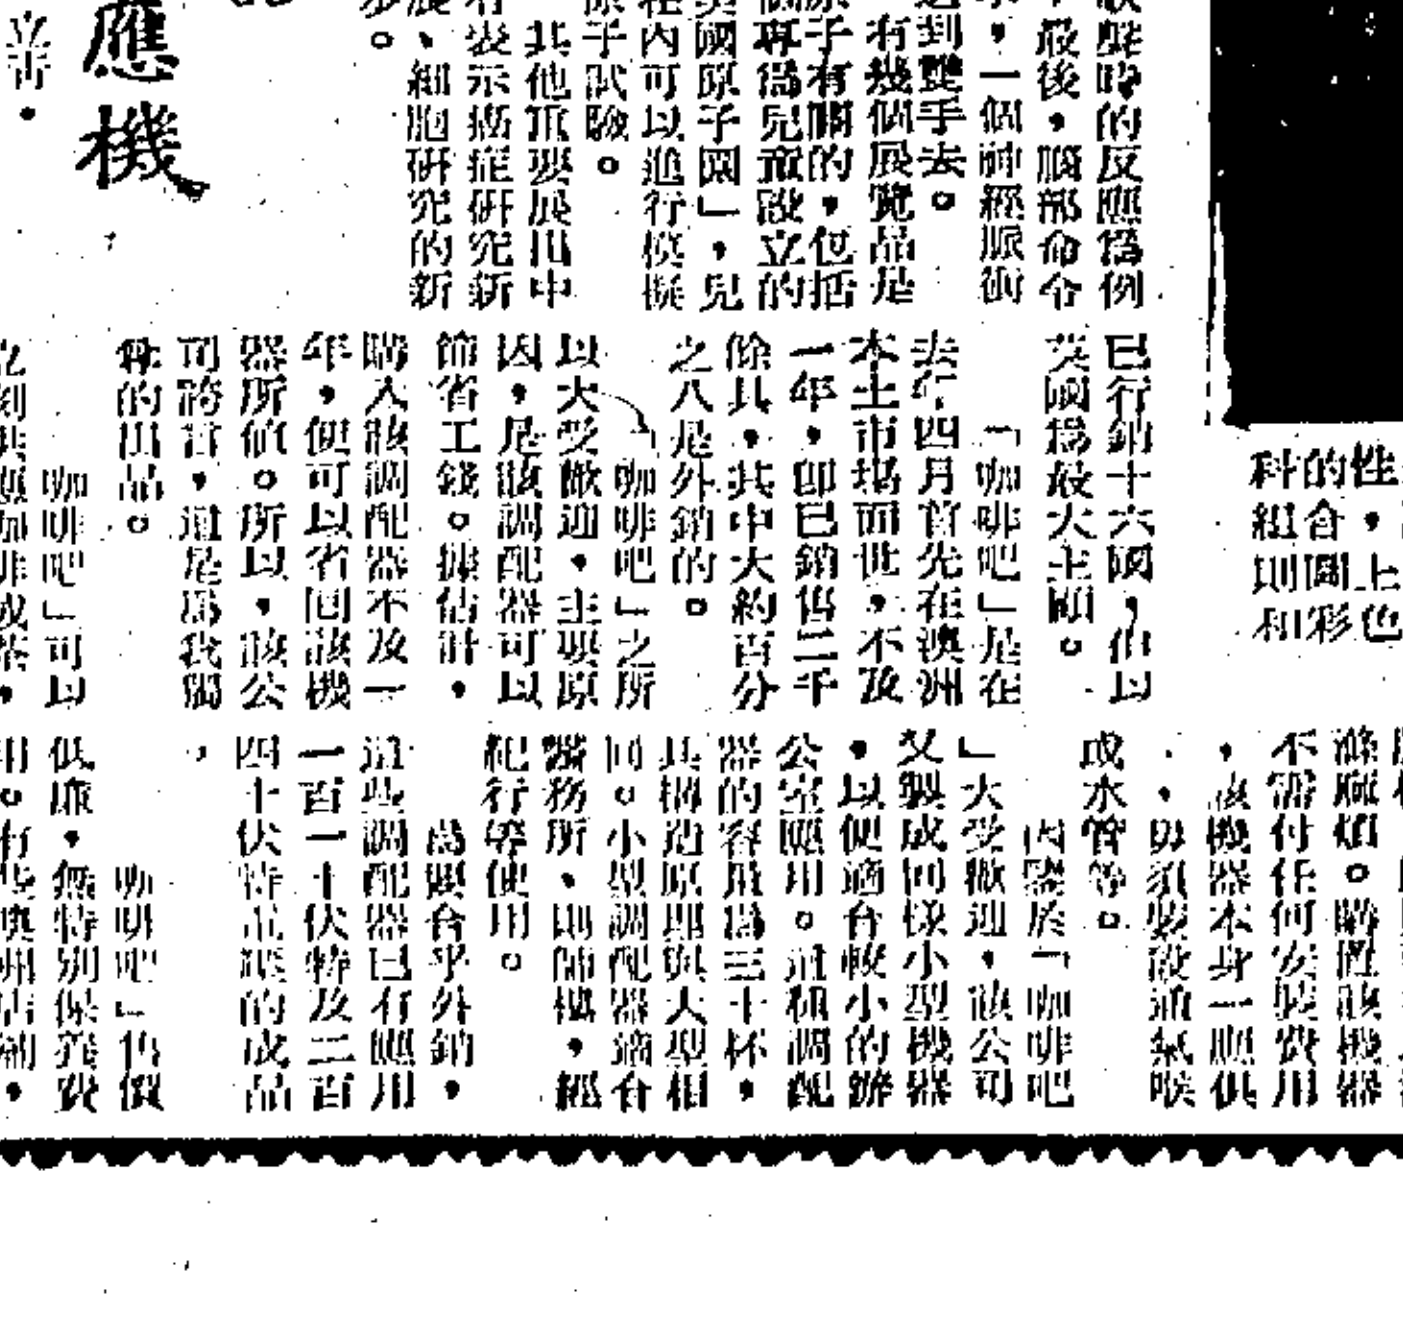 應機
歡聲時的反應爲例
，最後，腦部命令
，一個神經脈衝
達到雙手去。
有幾個展覽品是
原子有關的，包括
個專爲兒童設立的
英國原子園」，兒
在內可以進行模擬
原子試驗。
其他重要展出中
有表示癌症研究新
展、細胞研究的新
步。
科的性
組合，
則圖上
和彩色
已行銷十六國，伯以
英國爲最大主顧。
「咖啡吧」是在
去年四月首先在澳洲
本土市場面世，不及
一年，卽已銷售二千
餘具，其中大約百分
之八是外銷的。
「咖啡吧」之所
以大受歡迎，主要原
因，是該調配器可以
節省工錢。據估計，
購入該調配器不及一
年，便可以省回該機
器所值。所以，該公
司誇言，這是爲我獨
尊的出品。
咖啡吧」可以
立刻供應咖啡或茶，
滌麻煩。購置該機器
不需付任何安裝費用
，該機器本身一應俱
，毋須裝設通氣喉
或水管等。
因鑒於「咖啡吧
」大受歡迎，該公司
又製成同樣小型機器
，以便適合較小的辦
公室應用。這種調配
器的容量爲三十杯，
其構造原理與大型相
同。小型調配器適合
醫務所、則師樓，經
紀行等使用。
爲照合乎外銷，
這些調配器已有應用
一百一十伏特及二百
四十伏特電壓的成品
，
咖啡吧」售價
低廉，無特別保養費
用。有些澳洲店舖，